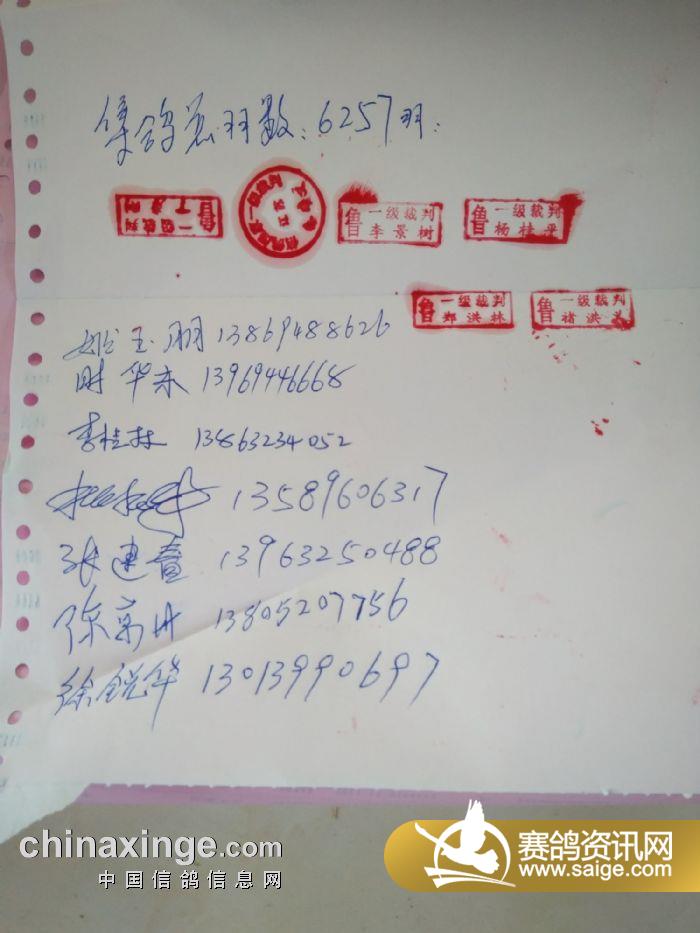 集鸽总羽数：6257羽：
鲁 一级裁判
鲁 一级裁判 李景树
鲁 一级裁判 杨桂平
鲁 一级裁判 郑洪林
鲁 一级裁判 褚洪
姬玉朋 13869488626
时华东 13969446668
李桂林 13863234052
13589606317
张建 13963250488
陈 13805207756
徐锐华 13013990697
chinaxinge.com
中国信鸽信息网
赛鸽资讯网
www.saige.com